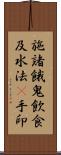 施諸餓鬼飲食
及水法幷手印